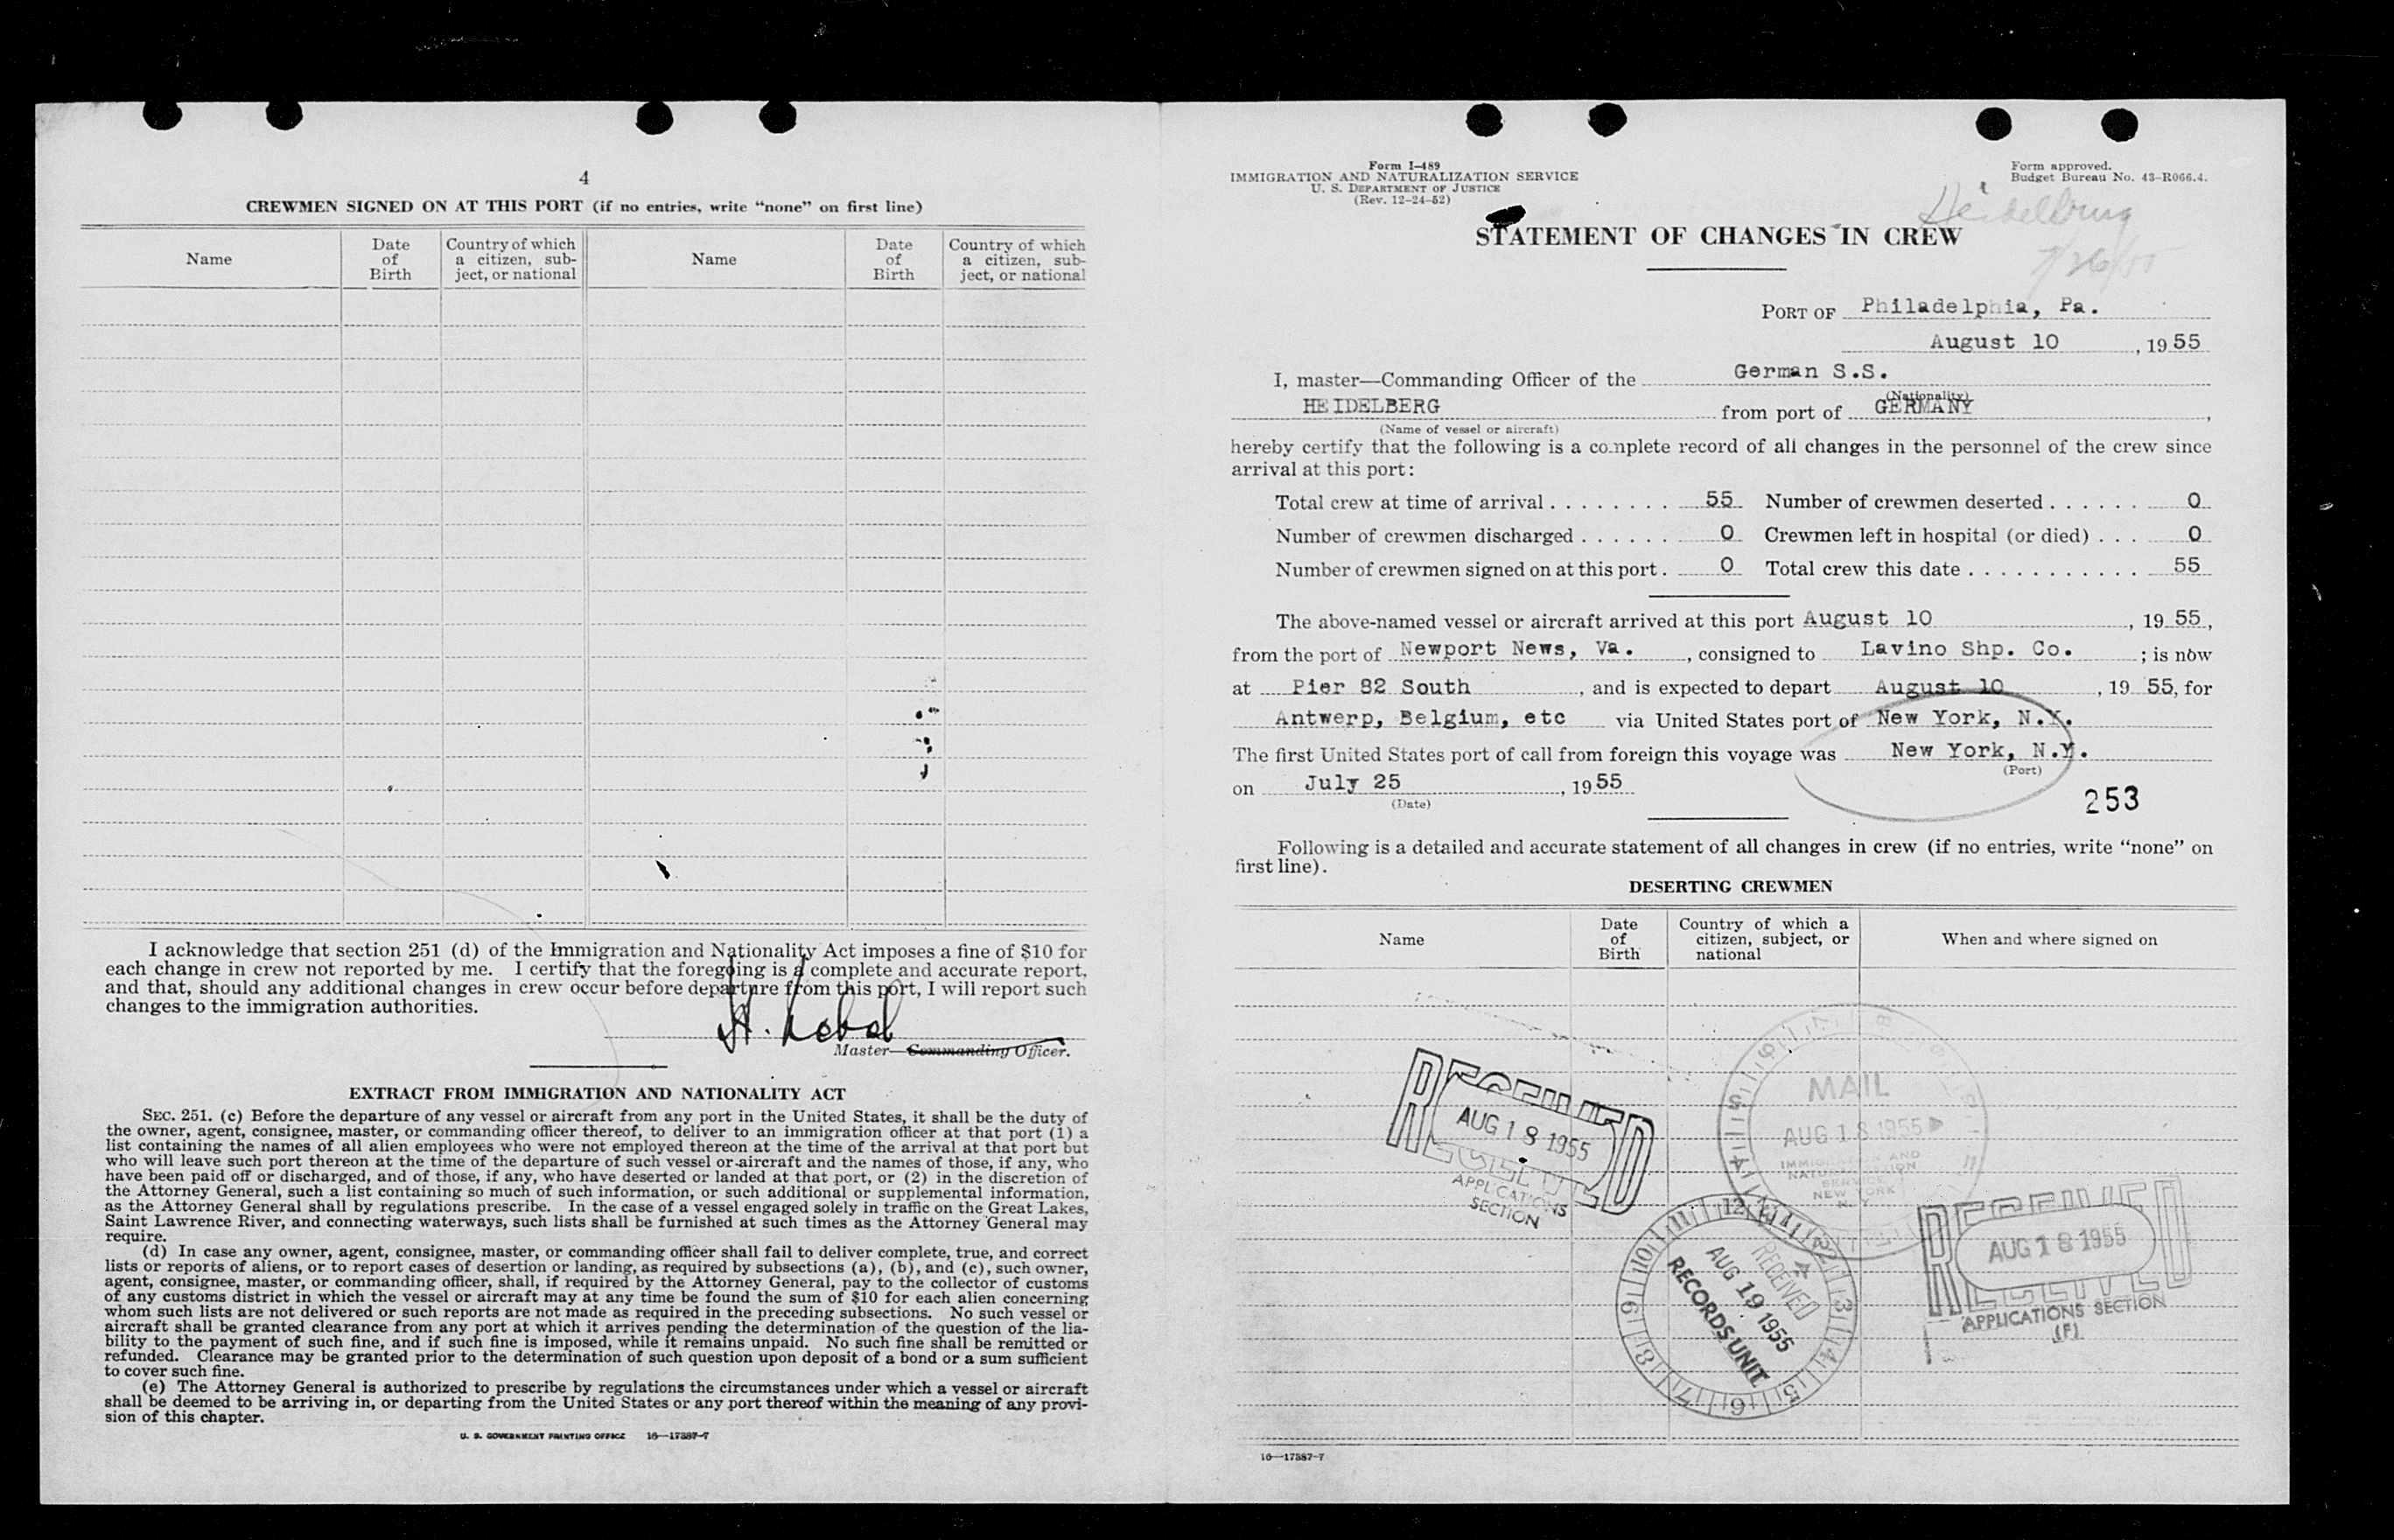 4
CREWMEN SIGNED ON AT THIS PORT (if no entries, write “none” on first line)
Name
Date of Birth
Country of which a citizen, sub-ject, or national
Name
Date of Birth
Country of which a citizen, sub-ject, or national
I acknowledge that section 251 (d) of the Immigration and Nationality Act imposes a fine of $10 for
each change in crew not reported by me. I certify that the foregoing is a complete and accurate report,
and that, should any additional changes in crew occur before departure from this port, I will report such
changes to the immigration authorities.
Master—Commanding Officer.
EXTRACT FROM IMMIGRATION AND NATIONALITY ACT
SEC. 251. (c) Before the departure of any vessel or aircraft from any port in the United States, it shall be the duty of
the owner, agent, consignee, master, or commanding officer thereof, to deliver to an immigration officer at that port (1) a
list containing the names of all alien employees who were not employed thereon at the time of the arrival at that port but
who will leave such port thereon at the time of the departure of such vessel or aircraft and the names of those, if any, who
have been paid off or discharged, and of those, if any, who have deserted or landed at that port, or (2) in the discretion of
the Attorney General, such a list containing so much of such information, or such additional or supplemental information,
as the Attorney General shall by regulations prescribe. In the case of a vessel engaged solely in traffic on the Great Lakes,
Saint Lawrence River, and connecting waterways, such lists shall be furnished at such times as the Attorney General may
require.
(d) In case any owner, agent, consignee, master, or commanding officer shall fail to deliver complete, true, and correct
lists or reports of aliens, or to report cases of desertion or landing, as required by subsections (a), (b), and (c), such owner,
agent, consignee, master, or commanding officer, shall, if required by the Attorney General, pay to the collector of customs
of any customs district in which the vessel or aircraft may at any time be found the sum of $10 for each alien concerning
whom such lists are not delivered or such reports are not made as required in the preceding subsections. No such vessel or
aircraft shall be granted clearance from any port at which it arrives pending the determination of the question of the lia-
bility to the payment of such fine, and if such fine is imposed, while it remains unpaid. No such fine shall be remitted or
refunded. Clearance may be granted prior to the determination of such question upon deposit of a bond or a sum sufficient
to cover such fine.
(e) The Attorney General is authorized to prescribe by regulations the circumstances under which a vessel or aircraft
shall be deemed to be arriving in, or departing from the United States or any port thereof within the meaning of any provi-
sion of this chapter.
U. S. GOVERNMENT PRINTING OFFICE 16—17387-7
Form I-489
IMMIGRATION AND NATURALIZATION SERVICE
U. S. DEPARTMENT OF JUSTICE
(Rev. 12-24-52)
Form approved.
Budget Bureau No. 43-R066.4.
Heidelberg
7/26/55
STATEMENT OF CHANGES IN CREW
PORT OF Philadelphia, Pa.
August 10, 1955
I, master—Commanding Officer of the German S.S.
(Nationality)
HEIDELBERG from port of GERMANY,
(Name of vessel or aircraft)
hereby certify that the following is a complete record of all changes in the personnel of the crew since
arrival at this port:
Total crew at time of arrival . . . . . . . . 55 Number of crewmen deserted . . . . . . 0
Number of crewmen discharged . . . . . . 0 Crewmen left in hospital (or died) . . . 0
Number of crewmen signed on at this port . 0 Total crew this date . . . . . . . . . . . 55
The above-named vessel or aircraft arrived at this port August 10, 1955,
from the port of Newport News, Va., consigned to Lavino Shp. Co.; is now
at Pier 82 South, and is expected to depart August 10, 1955, for
Antwerp, Belgium, etc via United States port of New York, N.Y.
The first United States port of call from foreign this voyage was New York, N.Y.
(Port)
on July 25, 1955
(Date)
253
Following is a detailed and accurate statement of all changes in crew (if no entries, write “none” on
first line).
DESERTING CREWMEN
Name
Date of Birth
Country of which a citizen, subject, or national
When and where signed on
RECEIVED
AUG 18 1955
APPLICATIONS
SECTION
MAIL
AUG 18 1955
IMMIGRATION AND
NATURALIZATION
SERVICE
NEW YORK
N. Y.
RECEIVED
AUG 19 1955
RECORDS UNIT
RECEIVED
AUG 18 1955
APPLICATIONS SECTION
(F)
16—17387-7